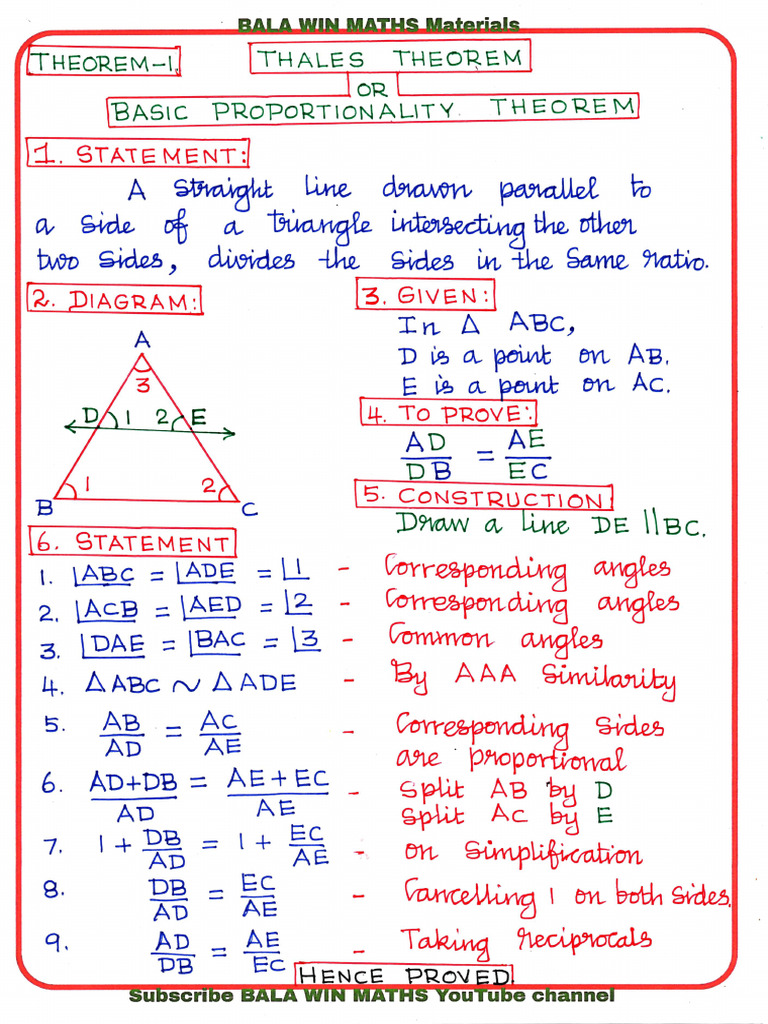 BALA WIN MATHS Materials
THEOREM-1. THALES THEOREM
OR
BASIC PROPORTIONALITY THEOREM
1. STATEMENT:
A straight line drawn parallel to
a side of a triangle intersecting the other
two sides, divides the sides in the same ratio.
2. DIAGRAM:
A
3
D 1 2 E
B 1 2 C
3. GIVEN:
In Δ ABC,
D is a point on AB.
E is a point on AC.
4. TO PROVE:
AD/DB = AE/EC
5. CONSTRUCTION
Draw a line DE ∥ BC.
6. STATEMENT
1. ∠ABC = ∠ADE = ∠1 - Corresponding angles
2. ∠ACB = ∠AED = ∠2 - Corresponding angles
3. ∠DAE = ∠BAC = ∠3 - Common angles
4. ΔABC ~ ΔADE - By AAA Similarity
5. AB/AD = AC/AE - Corresponding sides
are proportional
6. AD+DB/AD = AE+EC/AE - Split AB by D
Split AC by E
7. 1 + DB/AD = 1 + EC/AE - on Simplification
8. DB/AD = EC/AE - Cancelling 1 on both sides.
9. AD/DB = AE/EC - Taking reciprocals
HENCE PROVED
Subscribe BALA WIN MATHS YouTube channel